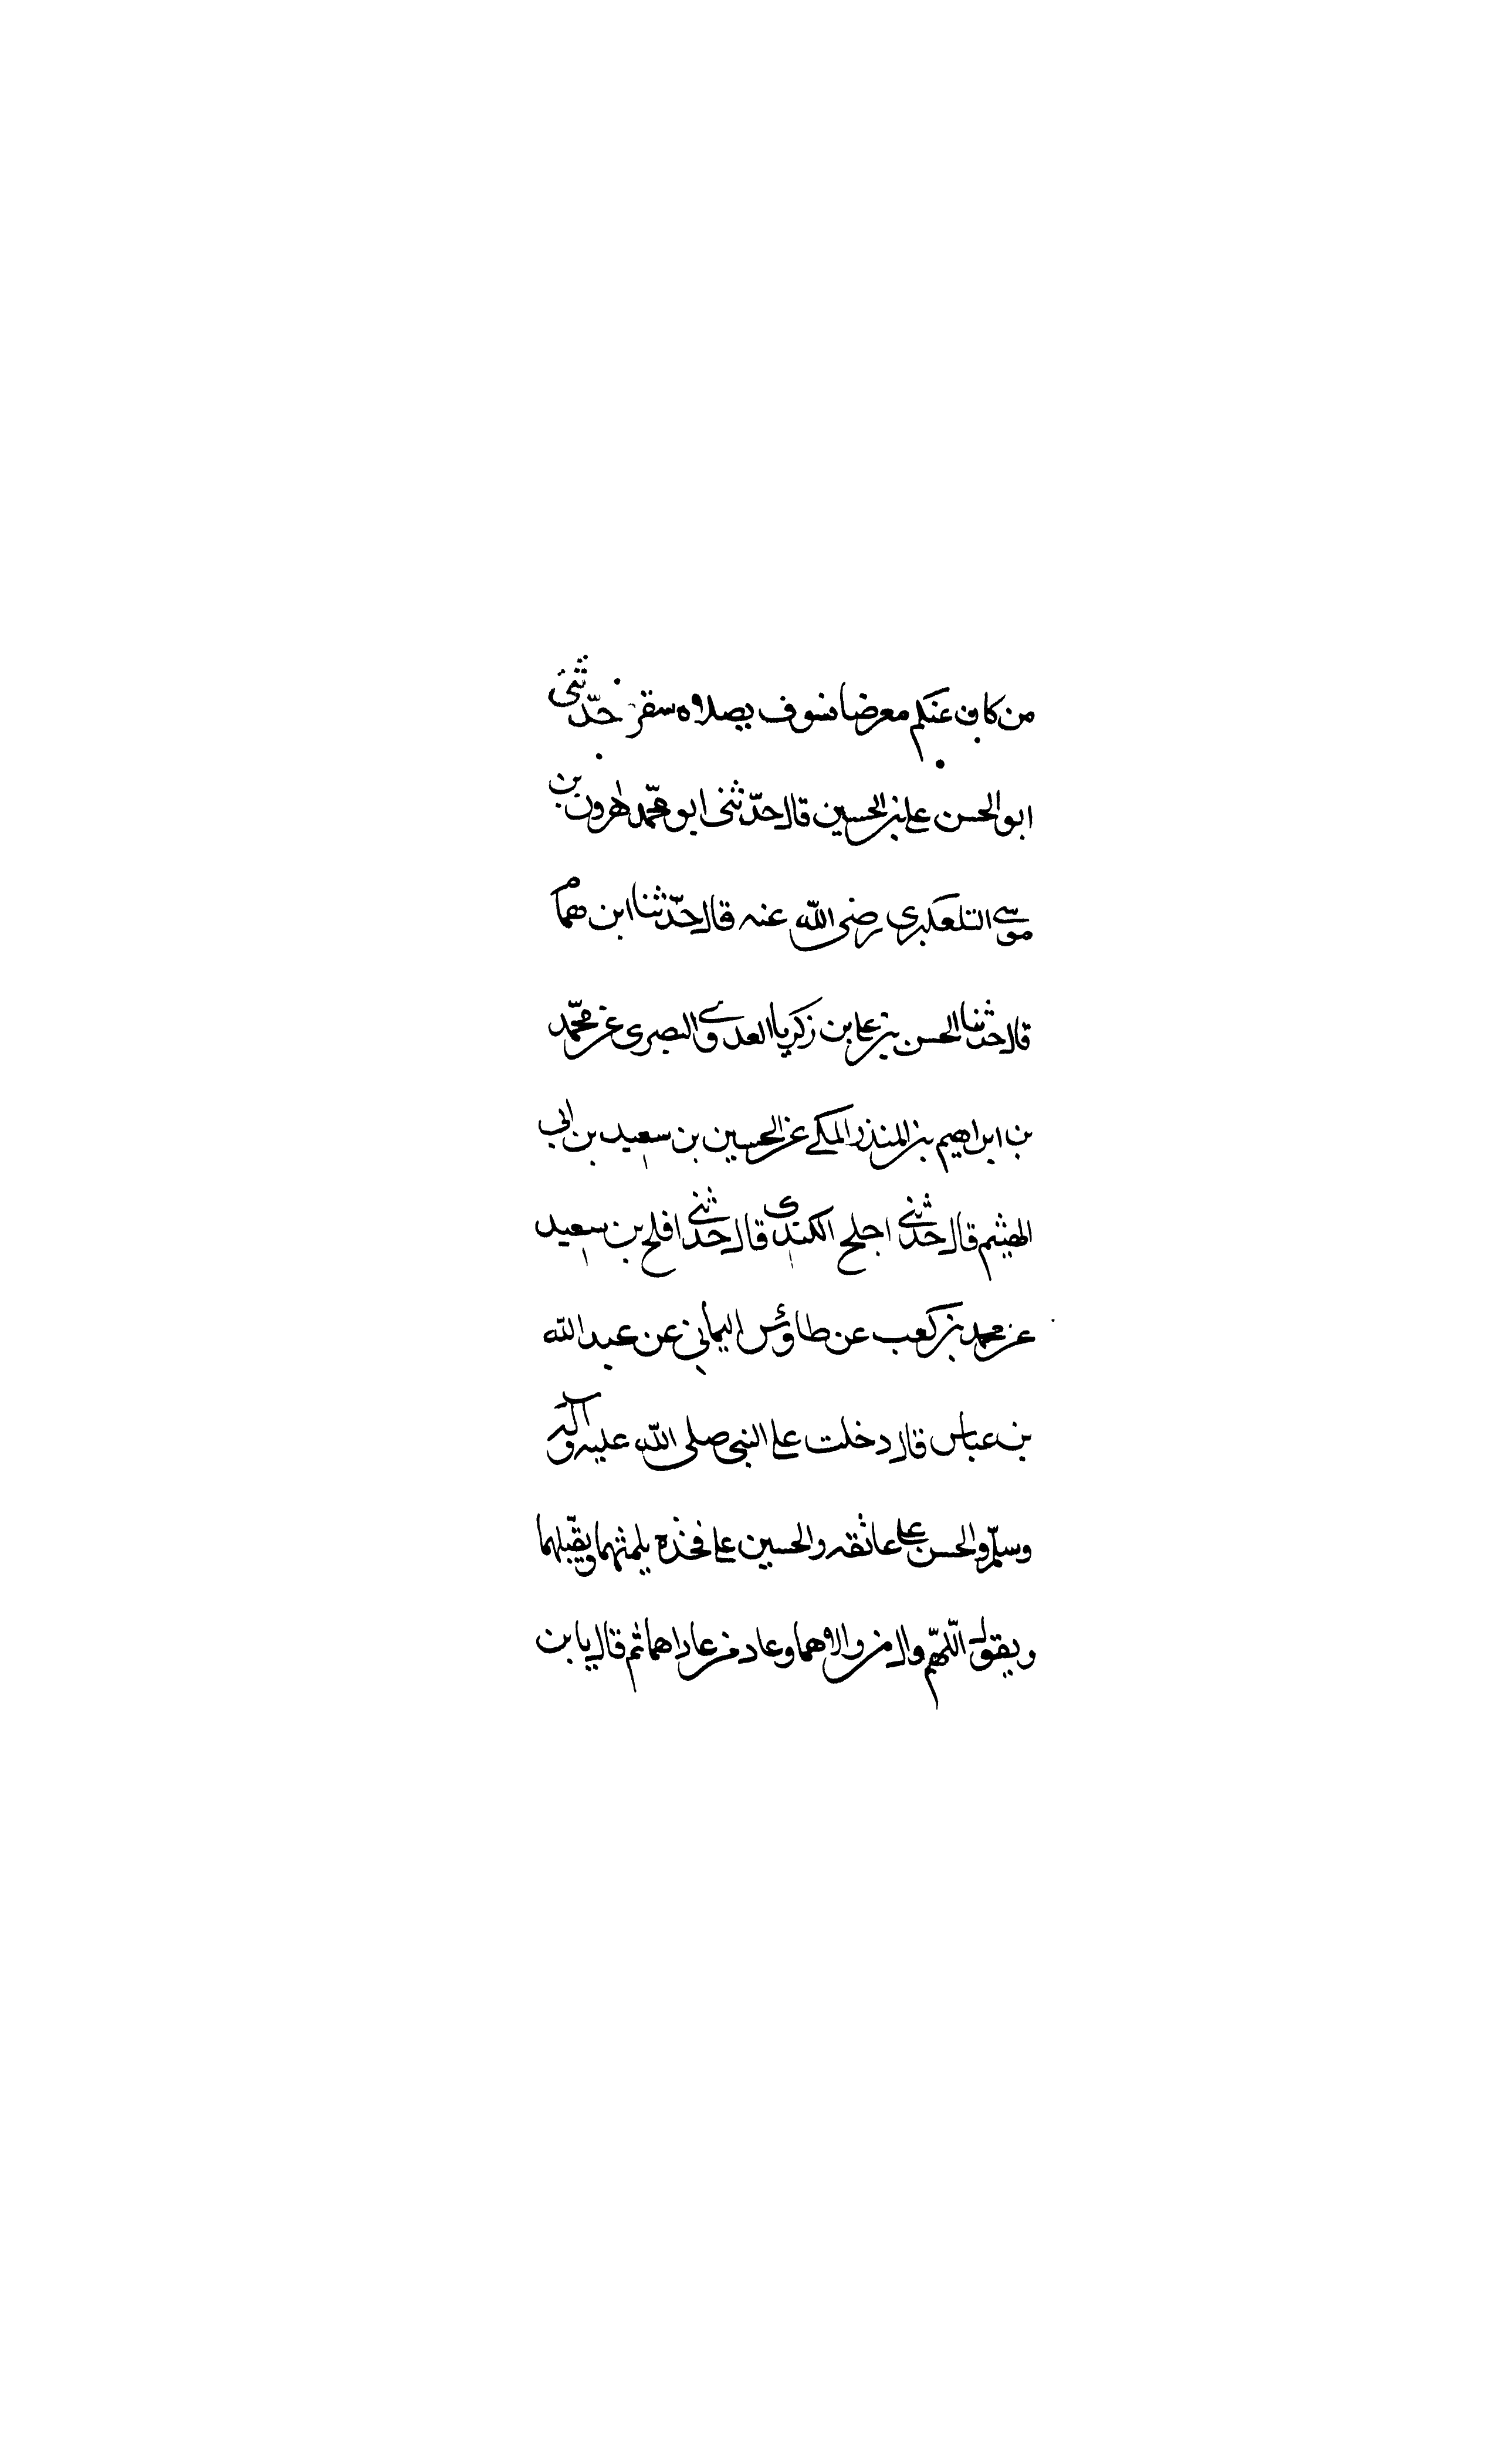 من كان عنكم معرضا سوف يصلاه سقر حدّثني
ابو الحسن علي بن الحسين قال حدّثنى ابو محمّد هرون بن
موسى التلعكبرى رضى اللّه عنه قال حدّثنا ابن همام
قال حدثنا الحسن بن علي بن زكريا العدوي البصرى عن محمّد
بن ابراهيم بن المنذر المكي عن الحسين بن سعيد بن ابي
الهيثم قال حدّثني اجلح الكندي قال حدّثني افلح بن سعيد
عن محمد بن كعب عن طاؤس اليماني عن عبد اللّه
بن عباس قال دخلت على النبي صلى اللّه عليه وآله
وسلّم والحسن على عاتقه والحسين على فخذه يلثمهما ويقبّلهما
ويقول اللّهمّ وال من والاهما وعاد من عاداهما ثم قال يا بن